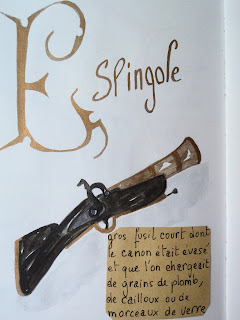 E
Spingole
gros fusil court dont
le canon était évasé
et que l'on chargeait
de grains de plomb,
de cailloux ou de
morceaux de verre